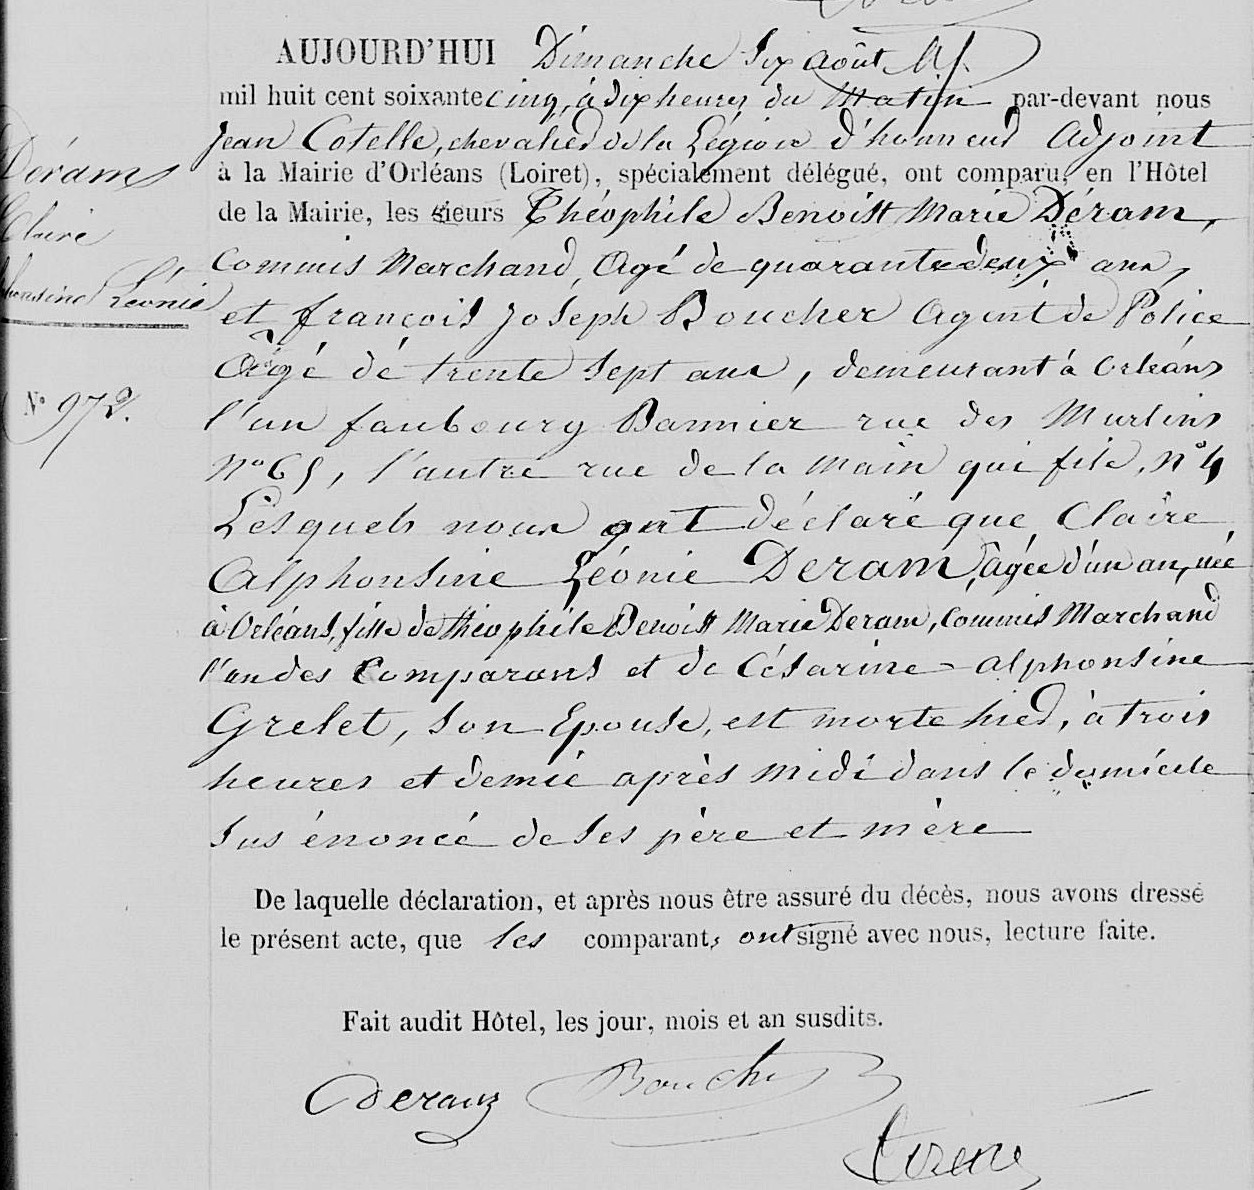 AUJOURD'HUI Dimanche Six Août
mil huit cent soixante cinq, à dix heures du Matin par-devant nous
Jean Cotelle, chevalier de la Légion d'honneur Adjoint
à la Mairie d'Orléans (Loiret), spécialement délégué, ont comparu, en l'Hôtel
de la Mairie, les sieurs Théophile Benoist Marie Déram,
Commis Marchand, Agé de quarante deux ans,
et françois Joseph Boucher Agent de Police
Agé de trente Sept ans, demeurant à Orléans
l'un faubourg Bannier rue des Murlins
N° 65, l'autre rue de la Main qui file, N° 4
Lesquels nous ont déclaré que Claire
Alphonsine Léonie Deram, âgée d'un an, née
à Orléans, fille de Théophile Benoist Marie Deram, Commis Marchand
l'un des Comparans et de Césarine-Alphonsine
Grelet, son Epouse, est morte hier, à trois
heures et demie après midi dans le domicile
sus énoncé de ses père et mère
De laquelle déclaration, et après nous être assuré du décès, nous avons dressé
le présent acte, que les comparants ont signé avec nous, lecture faite.
Fait audit Hôtel, les jour, mois et an susdits.
Deram Boucher
Déram
Claire
Léonie
N° 972.